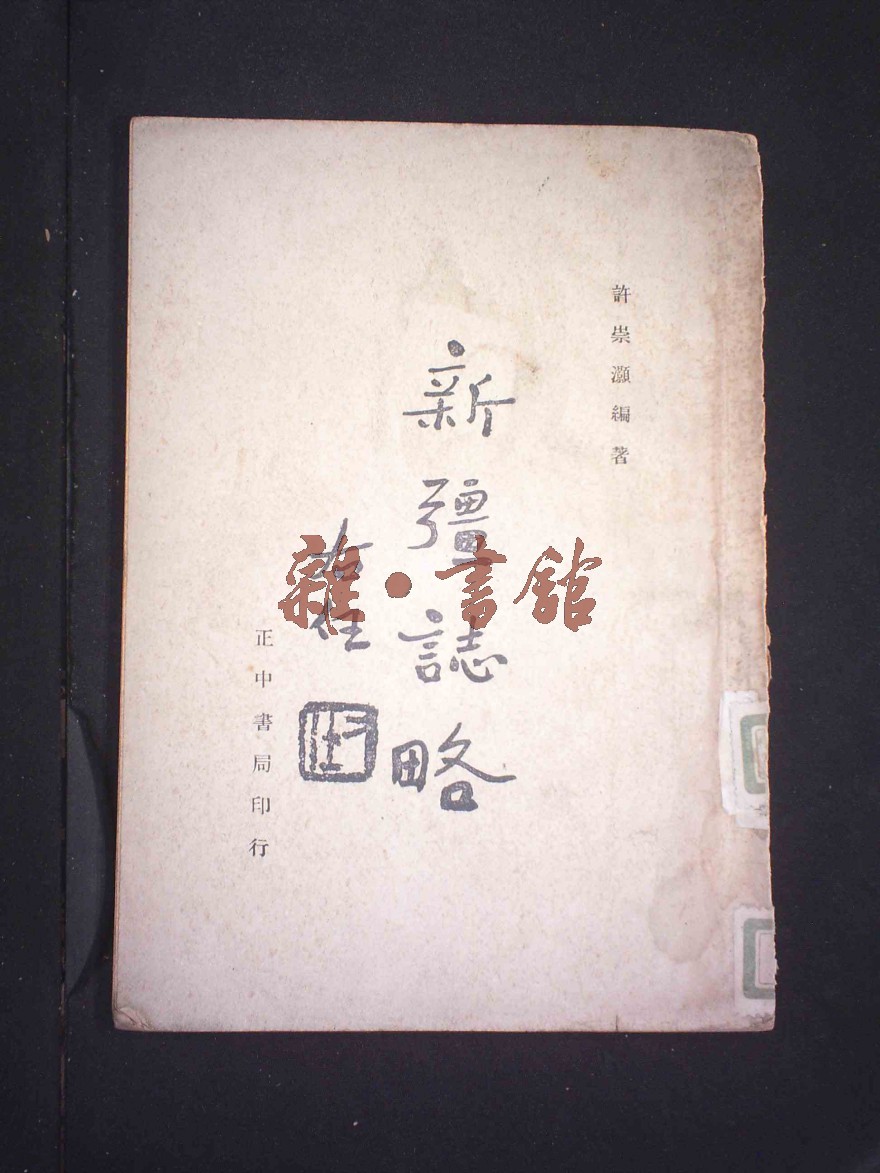 許崇灝編著
新疆誌略
正中書局印行
雜·書館